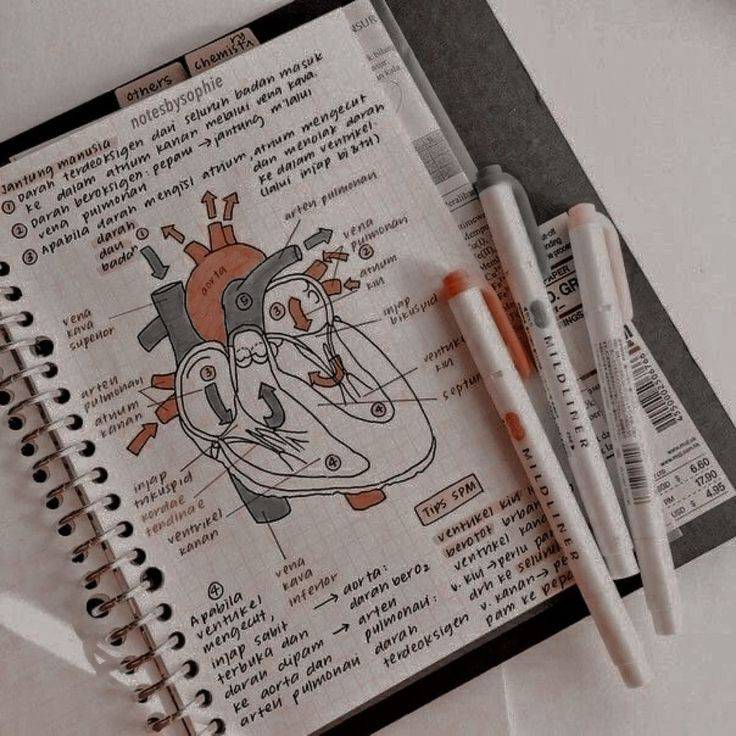 others
chemistry
notesbysophie
Jantung manusia
① Darah terdeoksigen dari seluruh badan masuk
ke dalam atrium kanan melalui vena kava.
② Darah beroksigen: pepar → jantung m'lalui
vena pulmonari
③ Apabila darah mengisi atrium, atrium mengecut
dan menolak darah
ke dalam ventrikel
(lalui injap bi&tri)
darah
dari
badan
①
arteri pulmonari
vena
pulmonari
②
atrium
kiri
injap
bikuspid
ventrikel
kiri
septum
aorta
⑤
③
③
④
④
vena
kava
superior
arteri
pulmonari
atrium
kanan
injap
trikuspid
kordae
tendinae
ventrikel
kanan
vena
kava
inferior
④
Apabila
ventrikel
mengecut,
injap sabit
terbuka dan
darah dipam
ke aorta dan
arteri pulmonari
→ aorta:
darah berO2
→ arteri
pulmonari:
darah
terdeoksigen
TIPS SPM
ventrikel kiri
berotot
ventrikel kanan
v. kiri → perlu
drh ke seluruh
v. kanan →
pam ke
MILDLINER
MILDLINER
MILDLINER
SGD $ 6.60
RM 17.90
USD $ 4.95